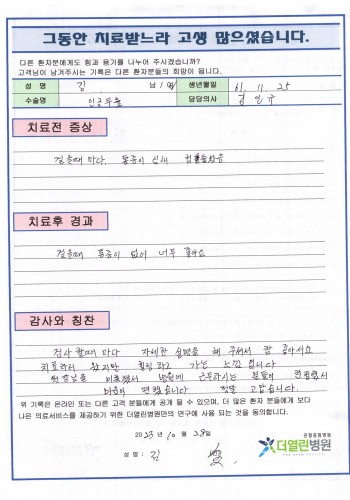 그동안 치료받느라 고생 많으셨습니다.
다른 환자분에게도 힘과 용기를 나누어 주시겠습니까?
고객님이 남겨주시는 기록은 다른 환자분들의 희망이 됩니다.
성 명 김 님 생년월일 61. 11. 25
수술명 인공무릎 담당의사
치료전 증상
걸을때 마다 통증이 심해 힘들었음
치료후 경과
걸을때 통증이 없어 너무 좋아요
감사와 칭찬
검사 할때 마다 자세한 설명을 해 주셔서 참 좋아서요
치료하러 왔지만 힐링 하고 가는 느낌 입니다
원장님을 비롯해서 병원에 근무하시는 분들이 친절해서
마음이 편했습니다 정말 고맙습니다.
위 기록은 온라인 또는 다른 고객 분들에게 공개 될 수 있으며, 더 많은 환자 분들에게 보다
나은 의료서비스를 제공하기 위한 더열린병원만의 연구에 사용 되는 것을 동의합니다.
2023년 10월 28일
성명: 김
관절중점병원
더열린병원